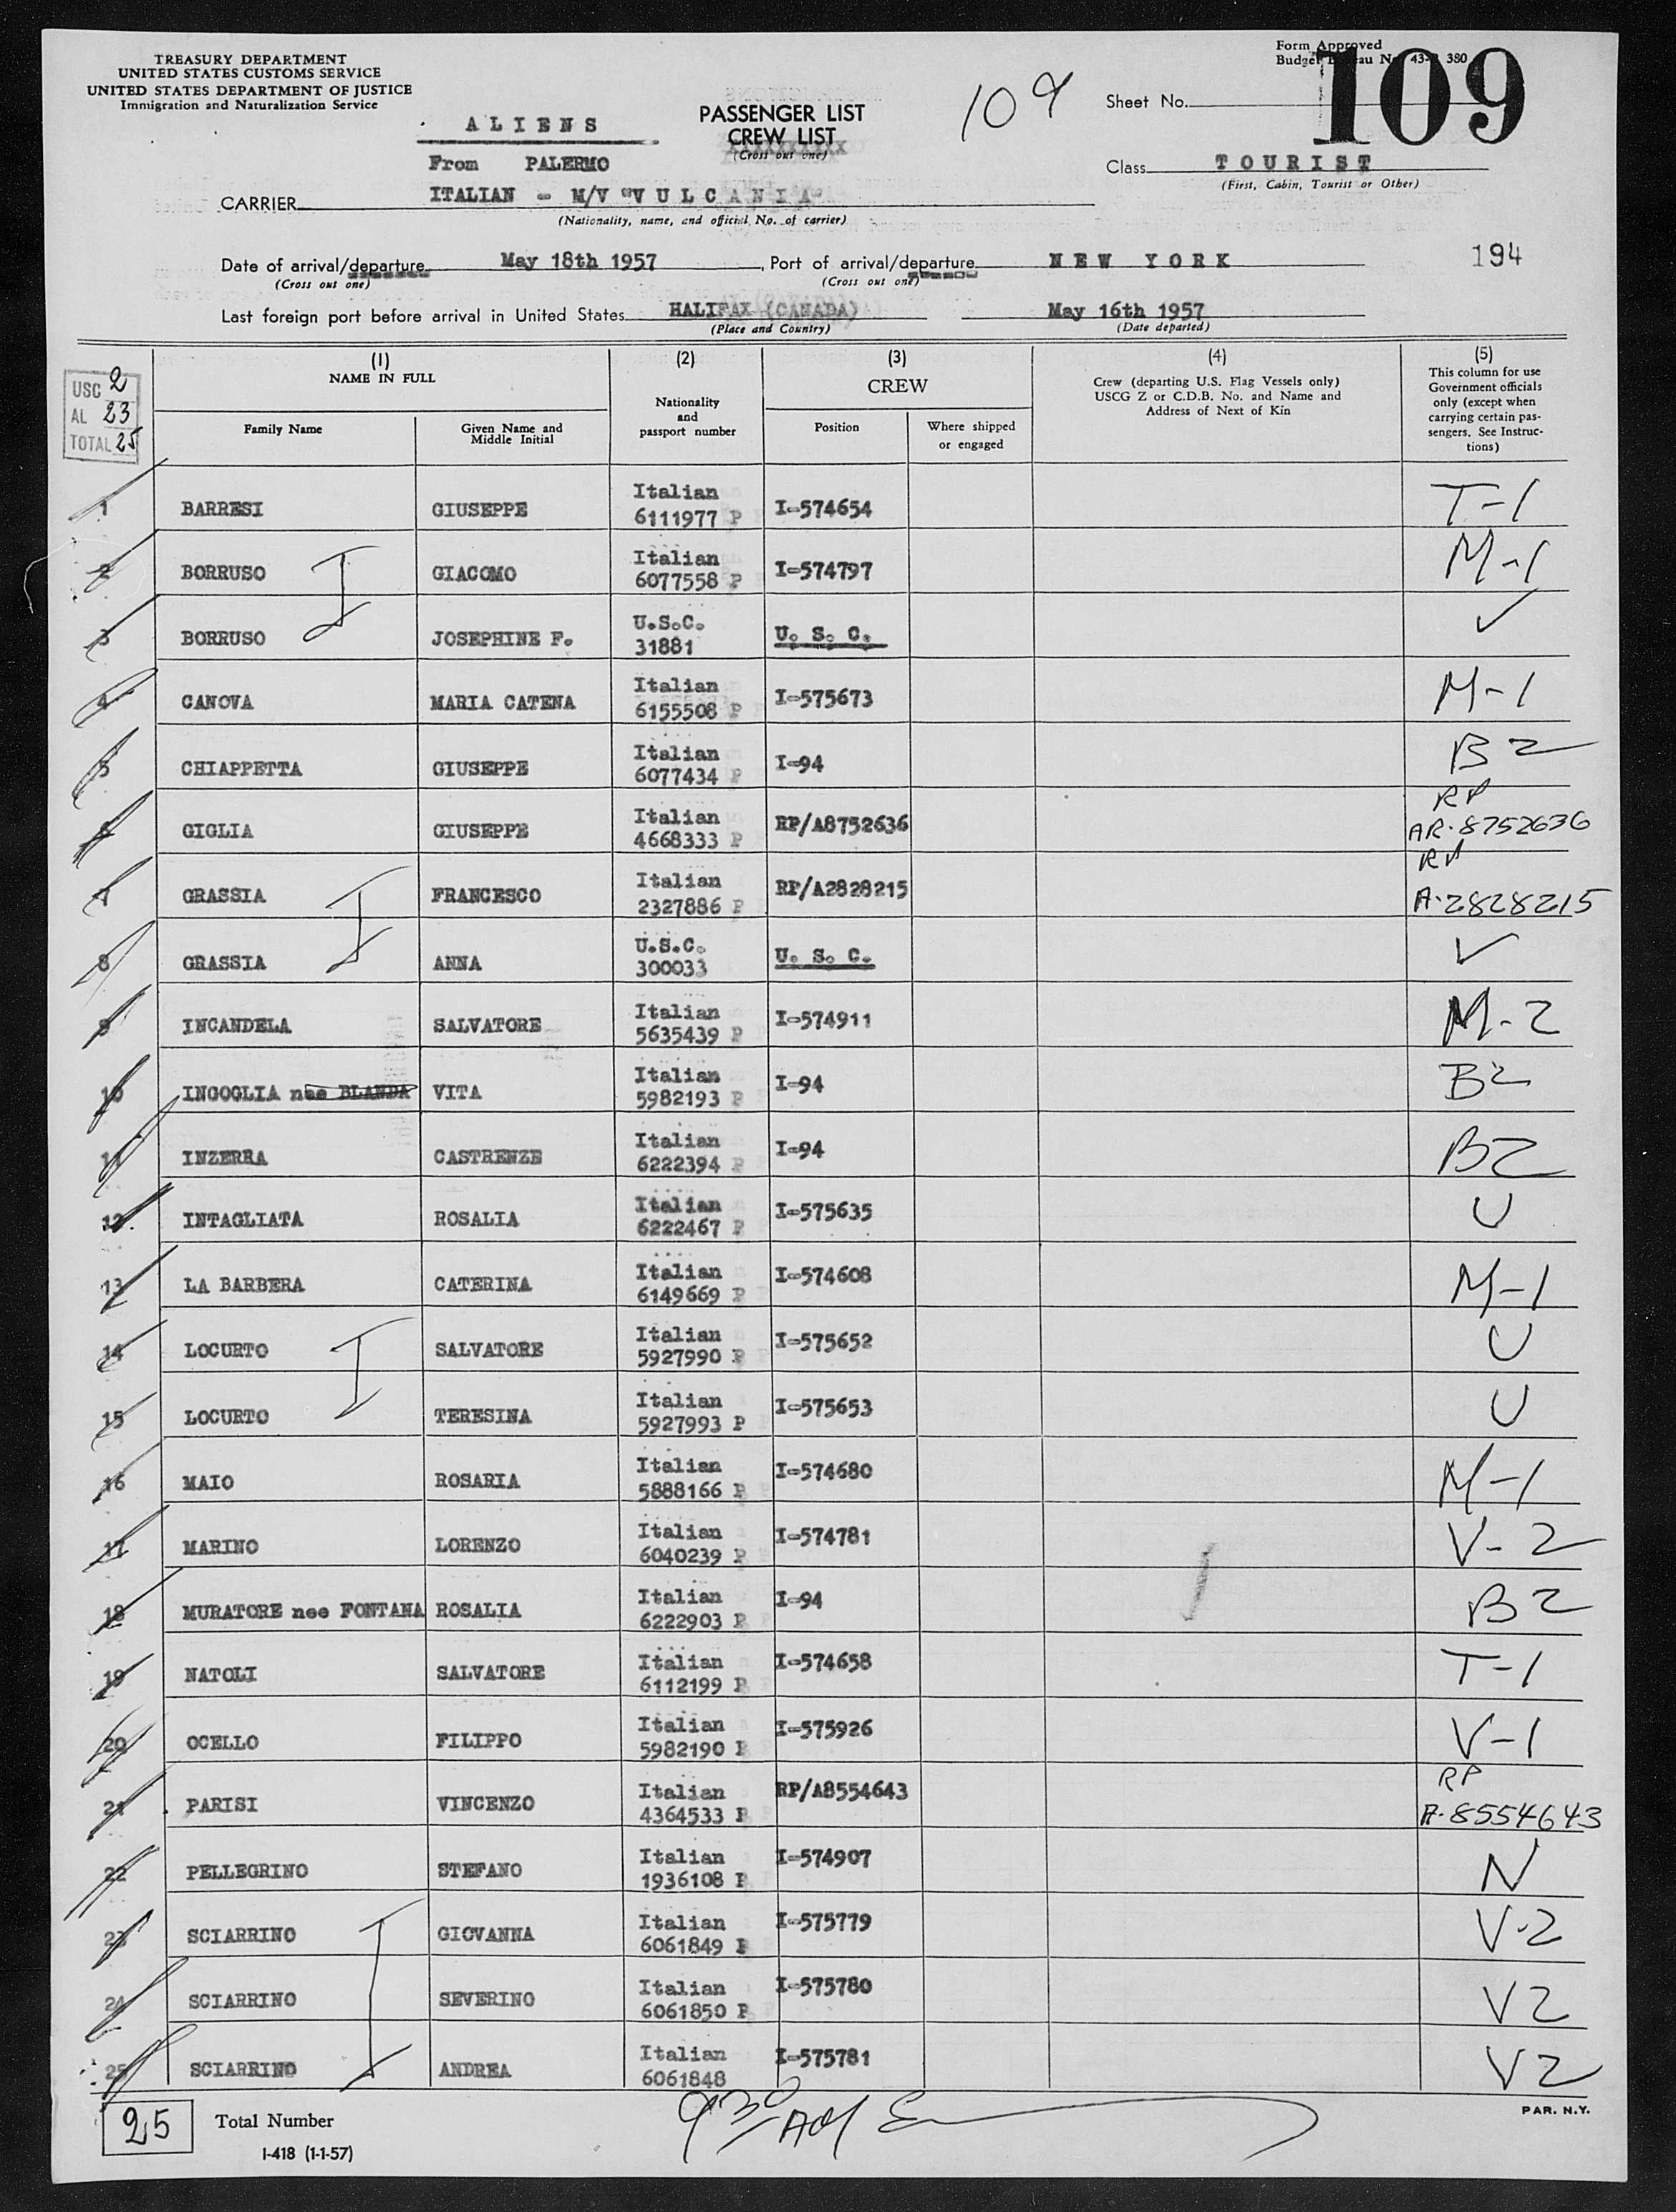 TREASURY DEPARTMENT
UNITED STATES CUSTOMS SERVICE
UNITED STATES DEPARTMENT OF JUSTICE
Immigration and Naturalization Service
Form Approved
Budget Bureau No. 43- 380
109
ALIENS
PASSENGER LIST
CREW LIST
(Cross out one)
109
Sheet No.
From PALERMO
Class TOURIST
(First, Cabin, Tourist or Other)
CARRIER ITALIAN - M/V "VULCANIA"
(Nationality, name, and official No. of carrier)
Date of arrival/departure May 18th 1957, Port of arrival/departure NEW YORK
194
(Cross out one) (Cross out one)
Last foreign port before arrival in United States HALIFAX (CANADA) May 16th 1957
(Place and Country) (Date departed)
USC 2
AL 23
TOTAL 25
(1) NAME IN FULL
Family Name
Given Name and Middle Initial
(2) Nationality and passport number
(3) CREW
Position
Where shipped or engaged
(4) Crew (departing U.S. Flag Vessels only) USCG Z or C.D.B. No. and Name and Address of Next of Kin
(5) This column for use Government officials only (except when carrying certain passengers. See Instructions)
1 BARRESI GIUSEPPE Italian 6111977 P I-574654 T-1
2 BORRUSO GIACOMO Italian 6077558 P I-574797 M-1
3 BORRUSO JOSEPHINE F. U.S.C. 31881 U. S. C. ✓
4 CANOVA MARIA CATENA Italian 6155508 P I-575673 M-1
5 CHIAPPETTA GIUSEPPE Italian 6077434 P I-94 B2
6 GIGLIA GIUSEPPE Italian 4668333 P RP/A8752636 RP AR-8752636
7 GRASSIA FRANCESCO Italian 2327886 P RP/A2828215 RP A-2828215
8 GRASSIA ANNA U.S.C. 300033 U. S. C. ✓
9 INCANDELA SALVATORE Italian 5635439 P I-574911 M-2
10 INGOGLIA nee BLANDA VITA Italian 5982193 P I-94 B2
11 INZERRA CASTRENZE Italian 6222394 P I-94 B2
12 INTAGLIATA ROSALIA Italian 6222467 P I-575635 U
13 LA BARBERA CATERINA Italian 6149669 P I-574608 M-1
14 LOCURTO SALVATORE Italian 5927990 P I-575652 U
15 LOCURTO TERESINA Italian 5927993 P I-575653 U
16 MAIO ROSARIA Italian 5888166 P I-574680 M-1
17 MARINO LORENZO Italian 6040239 P I-574781 V-2
18 MURATORE nee FONTANA ROSALIA Italian 6222903 P I-94 B2
19 NATOLI SALVATORE Italian 6112199 P I-574658 T-1
20 OCELLO FILIPPO Italian 5982190 P I-575926 V-1
21 PARISI VINCENZO Italian 4364533 P RP/A8554643 RP A-8554643
22 PELLEGRINO STEFANO Italian 1936108 P I-574907 N
23 SCIARRINO GIOVANNA Italian 6061849 P I-575779 V-2
24 SCIARRINO SEVERINO Italian 6061850 P I-575780 V2
25 SCIARRINO ANDREA Italian 6061848 I-575781 V2
25 Total Number
930
PAR. N.Y.
I-418 (1-1-57)